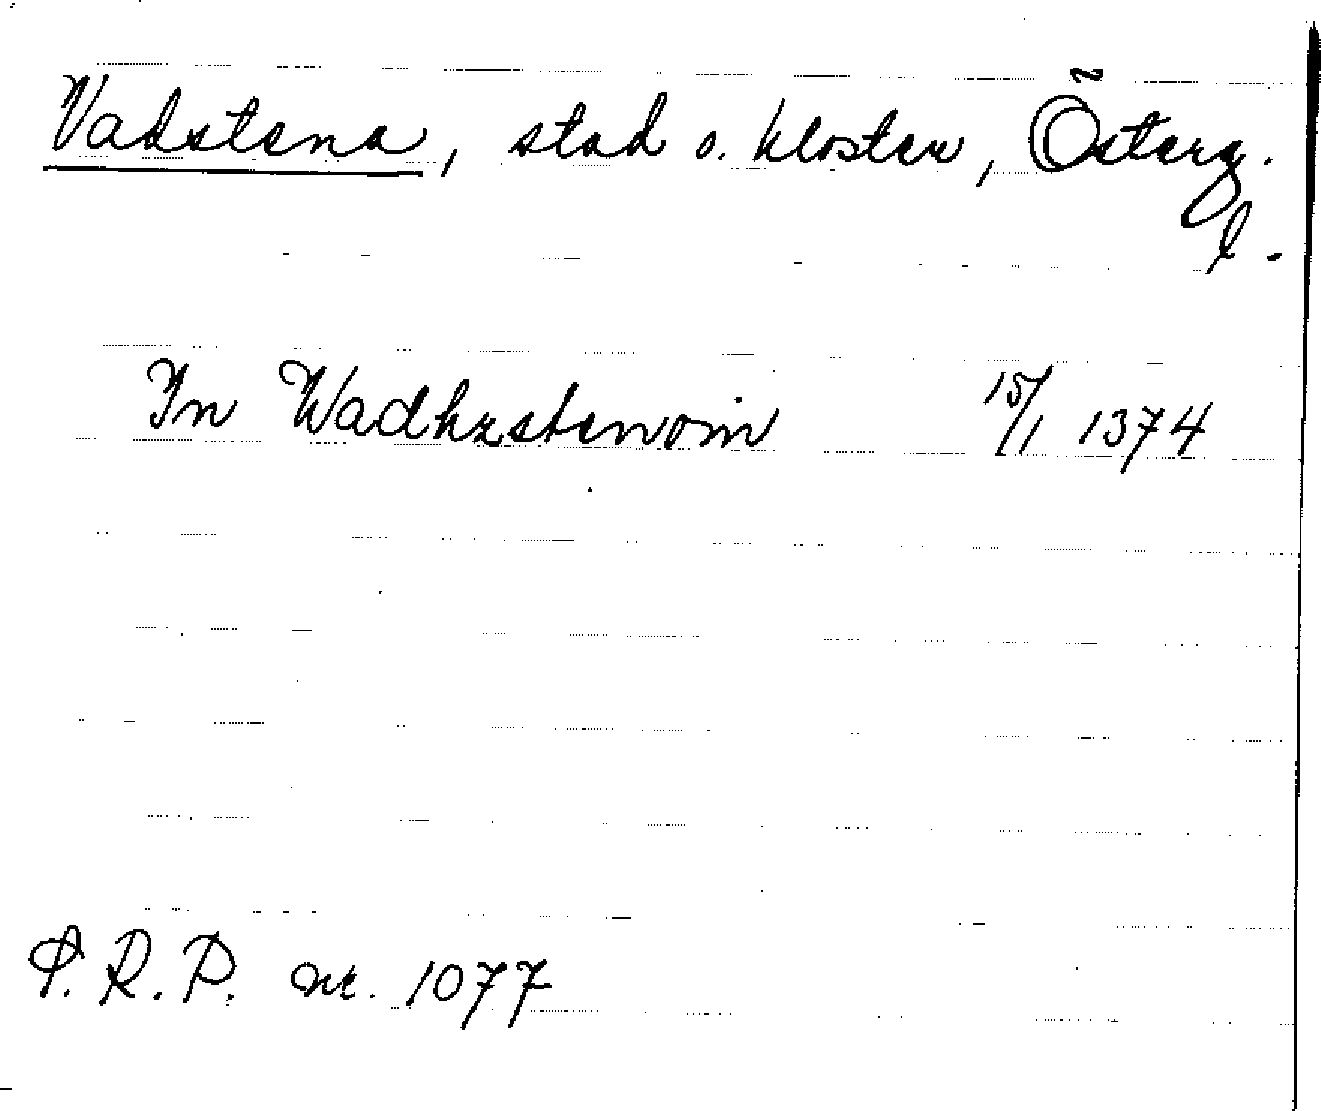 Vadstena, stad o. kloster, Österg.
l.
In Wadhzstenom 15/1 1374
P.R.P. nr. 1077